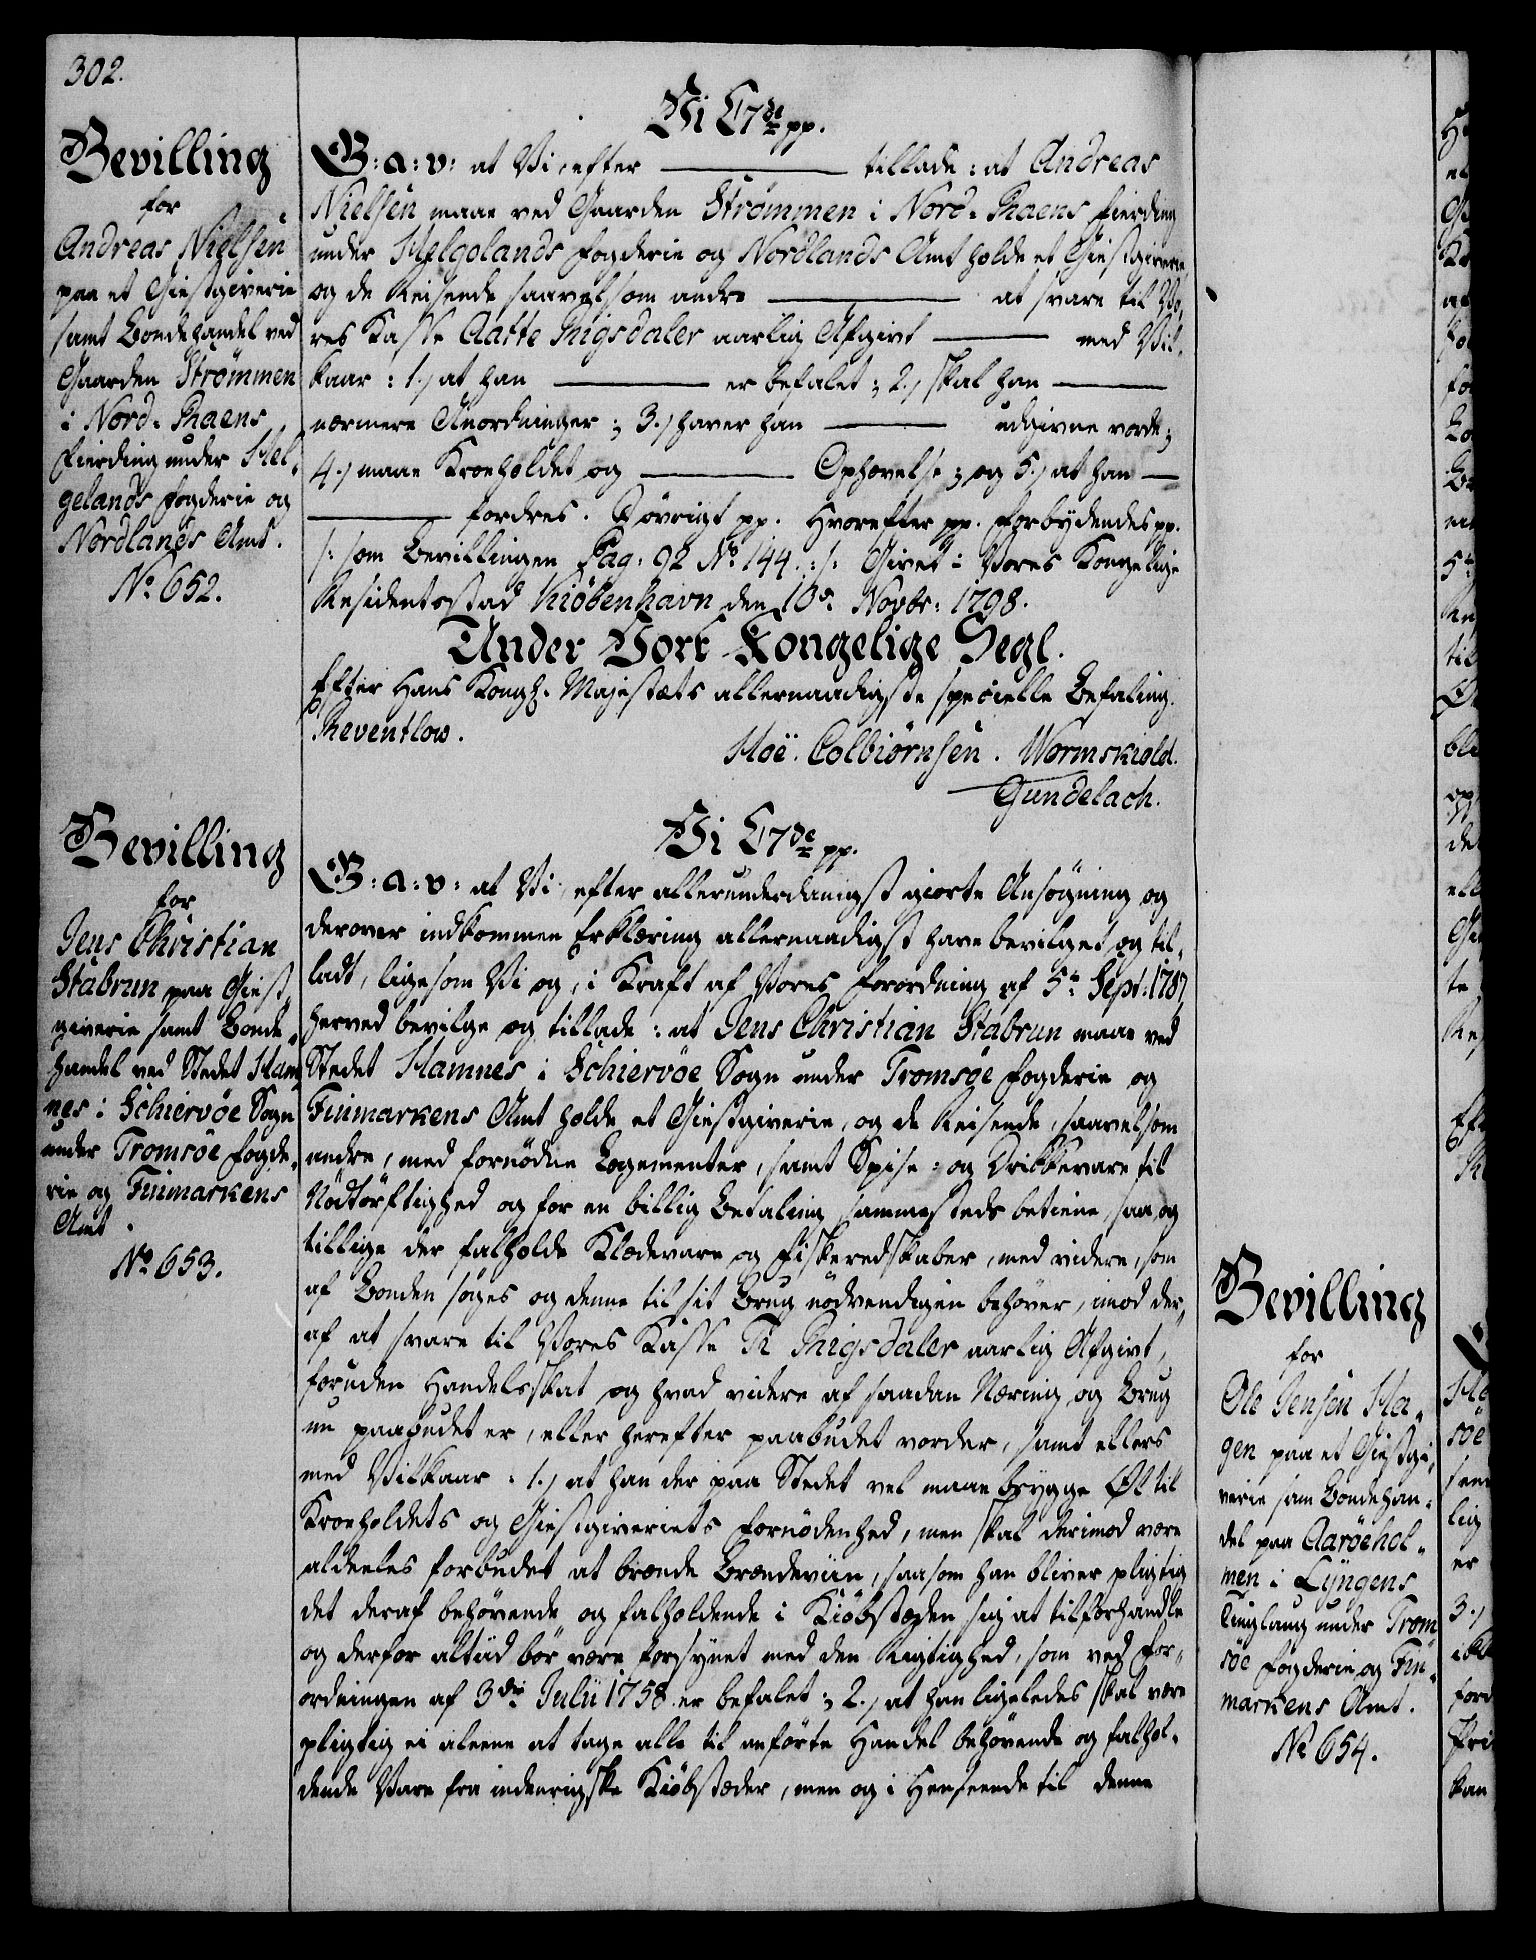 302.
Bevilling
for
Andreas Nielsen
paa et Giestgiverie
samt Bondehandel ved
Gaarden Strømmen
i Nord-Raens
Fierding under Hel-
gelands Fogderie og
Nordlands Amt.
No. 652.
Vi C7de pp.
G: a: v: at Vi, efter ——— tillade: at Andreas
Nielsen maae ved Gaarden Strømmen i Nord-Raens Fierding
under Helgolands Fogderie og Nordlands Amt holde et Giestgiverie
og de Reisende saavelsom andre ——— at svare til Vo-
res Kasse Aatte Rigsdaler aarlig Afgivt ——— med Vil-
kaar: 1.) at han ——— er befalet; 2.) skal han ———
nærmere Anordninger; 3.) haver han ——— udgivne vorde;
4.) maae Kroeholdet og ——— Ophævelse; og 5.) at han —
——— fordres. I øvrigt pp. Hvorefter pp. Forbydendes pp.
/: som Bevillingen Pag: 92 No. 144. :/: Givet i Vores Kongelige
Residentsstad Kiøbenhavn den 10de Novbr: 1798.
Under Vort Kongelige Segl.
Efter Hans Kongl. Majestæts allernaadigste specielle Befaling.
Reventlow.
Hoë. Colbiørnsen. Wormskiold.
Gundelach.
Bevilling
for
Jens Christian
Stabrun paa Giest-
giverie samt Bonde-
handel ved Stedet Ham-
nes i Schiervøe Sogn
under Tromsøe Fogde-
rie og Finmarkens
Amt.
No. 653.
Vi C7de pp.
G: a: v: at Vi, efter allerunderdanigst giorte Ansøgning og
derover indkommen Erklæring allernaadigst have bevilget og til-
ladt, ligesom Vi og, i Kraft af Vores Forordning af 5te Sept: 1787
herved bevilge og tillade: at Jens Christian Stabrun maae ved
Stedet Hamnes i Schiervøe Sogn under Tromsøe Fogderie og
Finmarkens Amt holde et Giestgiverie, og de Reisende, saavelsom
andre, med fornødne Logementer, samt Spise- og Drikkevare til
Nødtørftighed og for en billig Betaling sammesteds betiene, saa og
tillige der falholde Klædevare og Fiskeredskaber, med videre, som
af Bonden søges og denne til sit Brug nødvendigen behøver, imod der-
af at svare til Vores Kasse Ti Rigsdaler aarlig Afgivt,
foruden Handelsskat og hvad videre af saadan Næring og Brug
nu paabudet er, eller herefter paabudet vorder, samt ellers
med Vilkaar: 1.) at han der paa Stedet vel maae brygge Øl til
Kroeholdets og Giestgiveriets Fornødenhed, men skal derimod være
aldeeles forbudet at brænde Brændeviin, saasom han bliver pligtig
det deraf behøvende og falholdende i Kiøbstæden sig at tilforhandle
og derfor altiid bør være forsynet med den Rigtighed, som ved For-
ordningen af 3die Julii 1758 er befalet; 2.) at han ligeledes skal være
pligtig ei aleene at tage alle til anførte Handel behøvende og falhol-
dende Vare fra indenrigske Kiøbstæder, men og i Henseende til denne
Bevilling
for
Ole Jensen Ha-
gen paa et Giestgi-
verie sam Bondehan-
del paa Aarøehol-
men i Lyngens
Tinglaug under Trom
søe Fogderie og Fin-
markens Amt.
No. 654.